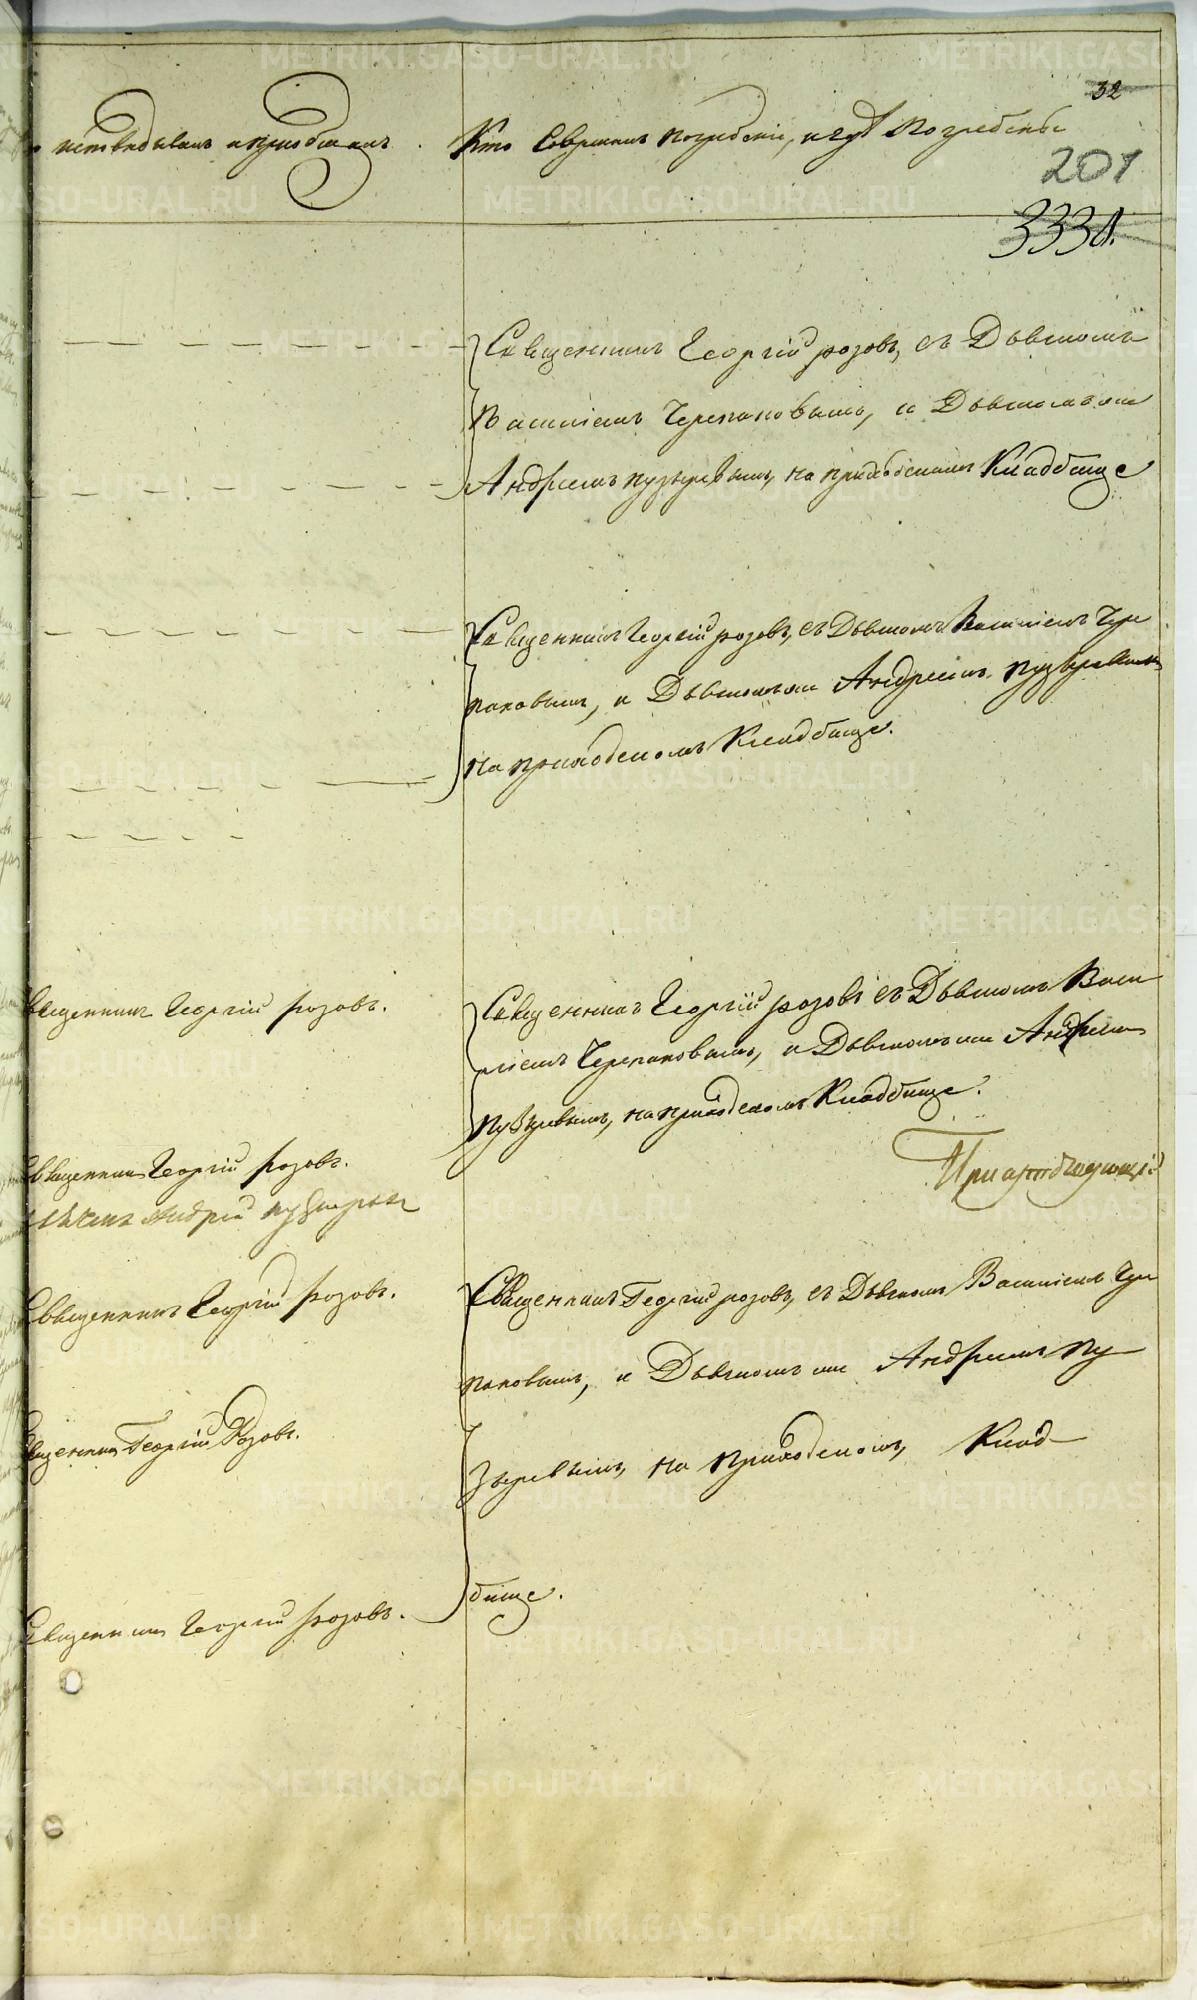 32
исповѣдывалъ и приобщалъ. Кто Совершалъ погребенiе, и гдѣ Погребены
201
333
Священникъ Георгiй розовъ, съ Дьячкомъ
Василiемъ Черепановымъ, и Дьячкомъ
Андреемъ пузыревымъ, на приходскомъ Кладбище
Священникъ Георгiй розовъ, съ Дьячкомъ Василiемъ Чере
пановымъ, и Дьячкомъ Андреемъ пузыревымъ
на приходскомъ Кладбище.
Священникъ Георгiй розовъ.
Священникъ Георгiй розовъ съ Дьячкомъ Васи
лiемъ Черепановымъ, и Дьячкомъ Андреемъ
пузыревымъ, на приходскомъ Кладбище.
Священникъ Георгiй розовъ.
Андрей пузыревъ
Священникъ Георгiй розовъ.
Священникъ Георгiй розовъ, съ Дьячкомъ Василiемъ Чере
пановымъ, и Дьячкомъ Андреемъ пу
Священникъ Георгiй Розовъ.
зыревымъ, на приходскомъ, Клад
бище.
Священникъ Георгiй розовъ.
METRIKI.GASO-URAL.RU